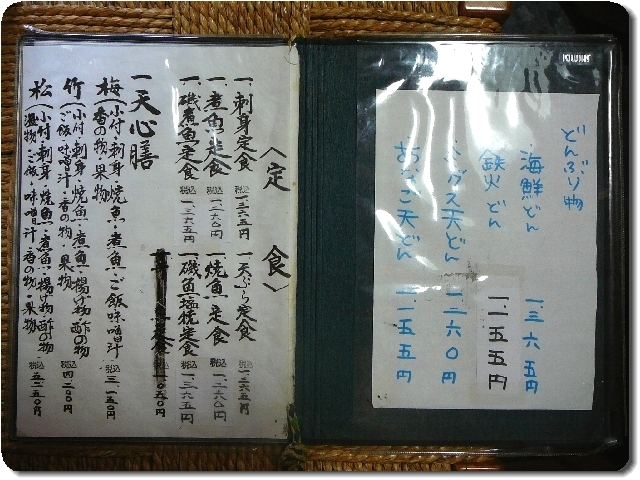 どんぶり物
海鮮どん 一、三六五円
鉄火どん 一、一五五円
天どん 一、二六〇円
あなご天どん 一、一五五円
〈定食〉
一、刺身定食 税込 一、三六五円
一、煮魚定食 税込 一、二六〇円
一、磯煮魚定食 税込 一、三六五円
一、天ぷら定食 税込 一、二六五円
一、焼魚定食 税込 一、二六〇円
一、磯魚塩焼定食 税込 一、三六五円
税込 一、〇五〇円
一天心膳
梅(小付・刺身・焼魚・煮魚・ご飯・味噌汁
香の物・果物 税込 三、一五〇円
竹(小付・刺身・焼魚・煮魚・揚げ物・酢の物
ご飯・味噌汁・香の物・果物 税込 四二〇〇円
松(小付・刺身・焼魚・煮魚・揚げ物・酢の物
ご飯・味噌汁・香の物・果物 税込 五二五〇円